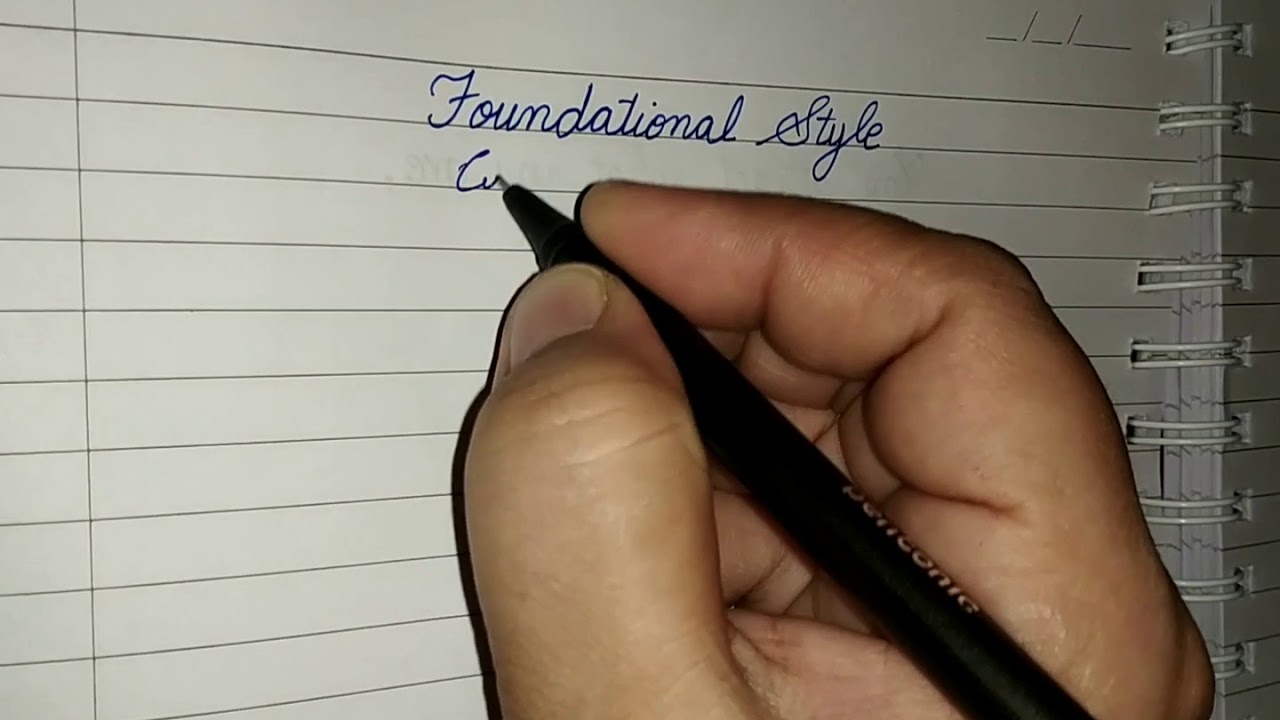 Foundational Style
Cu
penconic